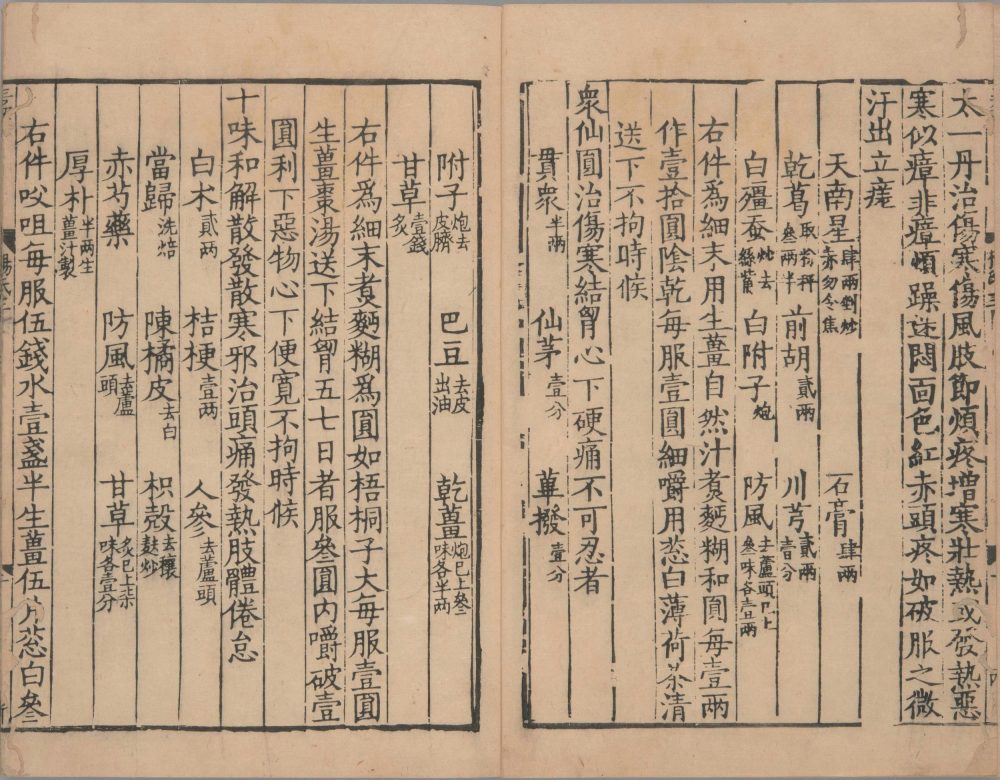 太一丹治傷寒傷風肢節煩疼增寒壯熱或發熱惡
寒似瘧非瘧煩躁迷悶面色紅赤頭疼如破服之微
汗出立瘥
天南星肆兩剉炒赤勿令焦 石膏肆兩
乾葛取末秤叁兩半 前胡貳兩 川芎貳兩壹分
白殭蚕炒去絲觜 白附子炮 防風去蘆頭巳上叁味各壹兩
右件爲細末用生薑自然汁煑麪糊和圓每壹兩
作壹拾圓陰乾每服壹圓細嚼用葱白薄荷茶清
送下不拘時候
衆仙圓治傷寒結胷心下硬痛不可忍者
貫衆半兩 仙茅壹分 蓽撥壹分
附子炮去皮臍 巴豆去皮出油 乾薑炮巳上叁味各半兩
甘草壹錢炙
右件爲細末煑麪糊爲圓如梧桐子大每服壹圓
生薑棗湯送下結胷五七日者服叁圓内嚼破壹
圓利下惡物心下便寬不拘時候
十味和解散發散寒邪治頭痛發熱肢體倦怠
白朮貳兩 桔梗壹兩 人參去蘆頭
當歸洗焙 陳橘皮去白 枳殼去穰麩炒
赤芍藥 防風去蘆頭 甘草炙巳上柒味各壹分
厚朴半兩生薑汁製
右件㕮咀每服伍錢水壹盞半生薑伍片葱白叁